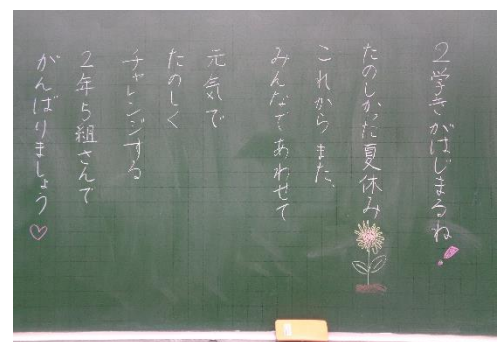 2学きがはじまるね!
たのしかった夏休み
これから また、
みんなであわせて
元気で
たのしく
チャレンジする
2年5組さんで
がんばりましょう♡